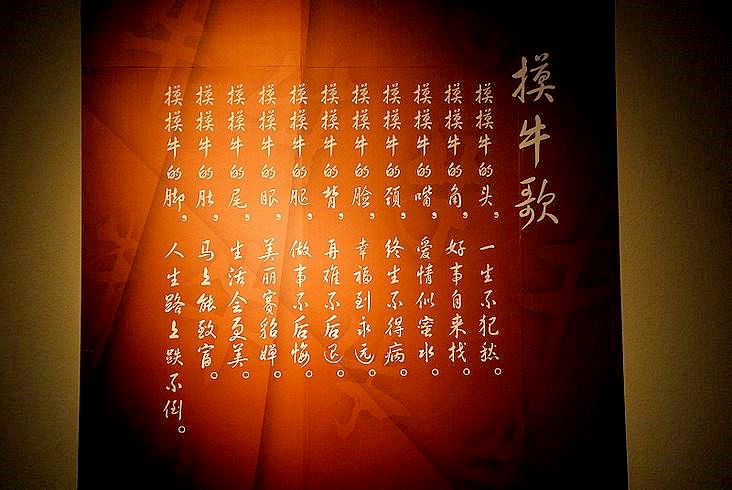 摸牛歌
摸摸牛的头，一生不犯愁。
摸摸牛的角，好事自来找。
摸摸牛的嘴，爱情似蜜水。
摸摸牛的颈，终生不得病。
摸摸牛的脸，幸福到永远。
摸摸牛的背，再难不后退。
摸摸牛的腿，做事不后悔。
摸摸牛的眼，美丽赛貂婵。
摸摸牛的尾，生活会更美。
摸摸牛的肚，马上能致富。
摸摸牛的脚，人生路上跌不倒。